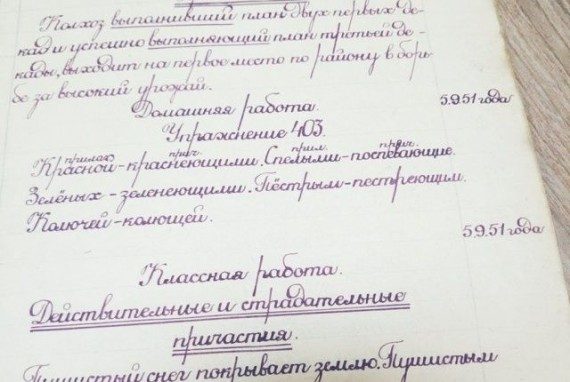 Колхоз выполнивший план двух первых де-
кад и успешно выполняющий план третьей де-
кады, выходит на первое место по району в борь-
бе за высокий урожай.
Домашняя работа. 5.9.51 года
Упражнение 403.
прилаг. прич. прил. прич.
Красной-краснеющими. Спелыми-поспевающие.
Зелёных - зеленеющими. Пёстрым-пестреющим.
Колючей-колющей.
5.9.51 года
Классная работа.
Действительные и страдательные
причастия.
Пушистый снег покрывает землю. Пушистым